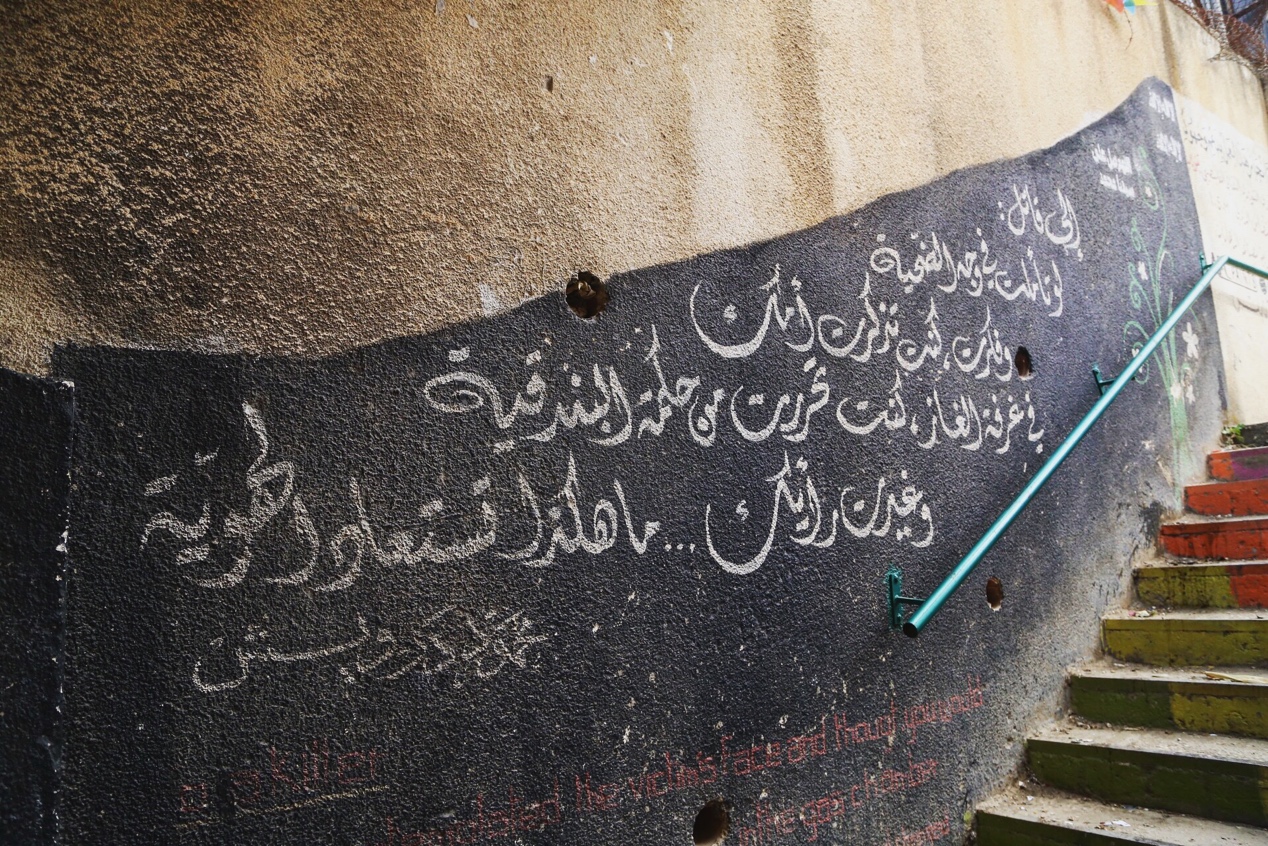 إلى قاتل:
لو تأملت في وجه الضحية
وفكرت، كنت تذكرت أمك
في غرفة الغاز، كنت تحررت من حكمة البندقية
وغيرت رأيك... ما هكذا تستعاد الهوية
محمود درويش
a killer
the victim's face and you would
in the gas chamber